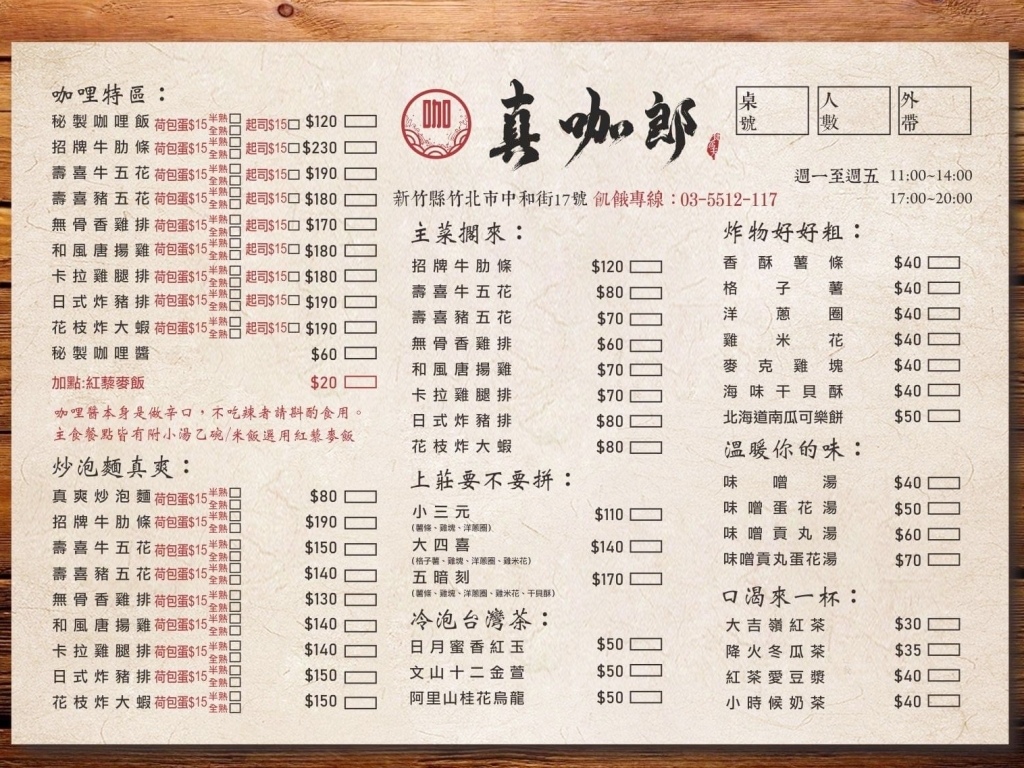 咖哩特區：
秘製咖哩飯 荷包蛋$15 半熟□ 全熟□ 起司$15□ $120
招牌牛肋條 荷包蛋$15 半熟□ 全熟□ 起司$15□ $230
壽喜牛五花 荷包蛋$15 半熟□ 全熟□ 起司$15□ $190
壽喜豬五花 荷包蛋$15 半熟□ 全熟□ 起司$15□ $180
無骨香雞排 荷包蛋$15 半熟□ 全熟□ 起司$15□ $170
和風唐揚雞 荷包蛋$15 半熟□ 全熟□ 起司$15□ $180
卡拉雞腿排 荷包蛋$15 半熟□ 全熟□ 起司$15□ $180
日式炸豬排 荷包蛋$15 半熟□ 全熟□ 起司$15□ $190
花枝炸大蝦 荷包蛋$15 半熟□ 全熟□ 起司$15□ $190
秘製咖哩醬 $60
加點:紅藜麥飯 $20
咖哩醬本身是做辛口，不吃辣者請斟酌食用。
主食餐點皆有附小湯乙碗/米飯選用紅藜麥飯
炒泡麵真爽：
真爽炒泡麵 荷包蛋$15 半熟□ 全熟□ $80
招牌牛肋條 荷包蛋$15 半熟□ 全熟□ $190
壽喜牛五花 荷包蛋$15 半熟□ 全熟□ $150
壽喜豬五花 荷包蛋$15 半熟□ 全熟□ $140
無骨香雞排 荷包蛋$15 半熟□ 全熟□ $130
和風唐揚雞 荷包蛋$15 半熟□ 全熟□ $140
卡拉雞腿排 荷包蛋$15 半熟□ 全熟□ $140
日式炸豬排 荷包蛋$15 半熟□ 全熟□ $150
花枝炸大蝦 荷包蛋$15 半熟□ 全熟□ $150
咖
真咖郎
桌號 人數 外帶
週一至週五 11:00~14:00
17:00~20:00
新竹縣竹北市中和街17號 飢餓專線：03-5512-117
主菜擱來：
招牌牛肋條 $120
壽喜牛五花 $80
壽喜豬五花 $70
無骨香雞排 $60
和風唐揚雞 $70
卡拉雞腿排 $70
日式炸豬排 $80
花枝炸大蝦 $80
上莊要不要拼：
小三元 $110
(薯條、雞塊、洋蔥圈)
大四喜 $140
(格子薯、雞塊、洋蔥圈、雞米花)
五暗刻 $170
(薯條、雞塊、洋蔥圈、雞米花、干貝酥)
冷泡台灣茶：
日月蜜香紅玉 $50
文山十二金萱 $50
阿里山桂花烏龍 $50
炸物好好粗：
香酥薯條 $40
格子薯 $40
洋蔥圈 $40
雞米花 $40
麥克雞塊 $40
海味干貝酥 $40
北海道南瓜可樂餅 $50
溫暖你的味：
味噌湯 $40
味噌蛋花湯 $50
味噌貢丸湯 $60
味噌貢丸蛋花湯 $70
口渴來一杯：
大吉嶺紅茶 $30
降火冬瓜茶 $35
紅茶愛豆漿 $40
小時候奶茶 $40